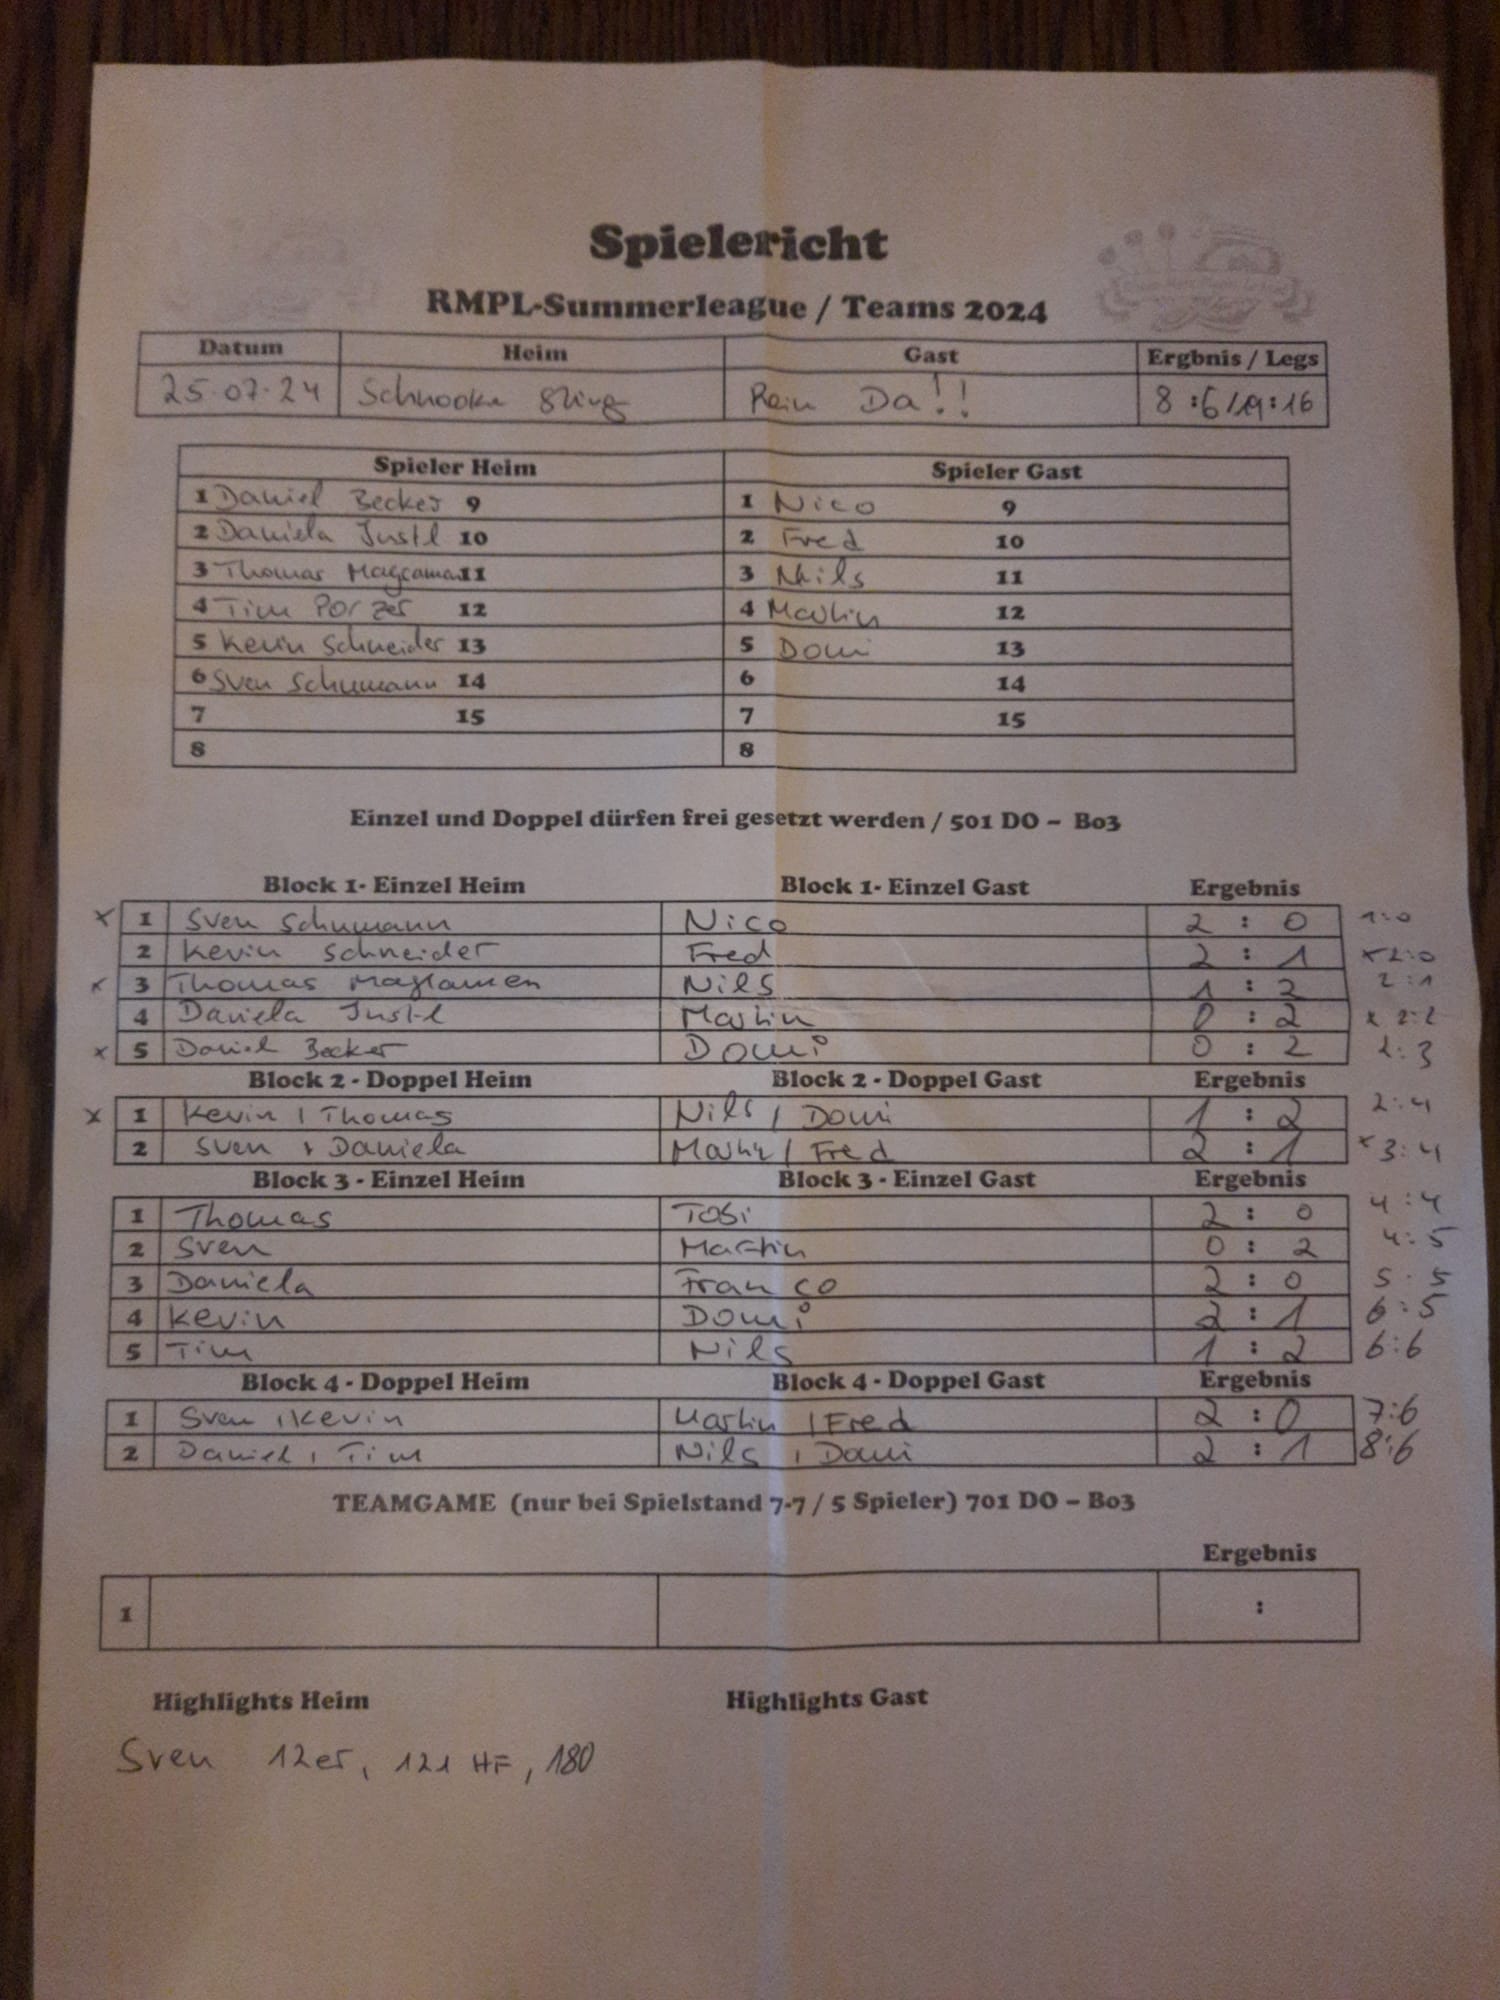 Spielericht
RMPL-Summerleague / Teams 2024
Datum Heim Gast Ergbnis / Legs
25.07.24 Schnooke Rein Da!! 8:6/19:16
Spieler Heim Spieler Gast
1 Daniel Becker 9 1 Nico 9
2 Daniela Justl 10 2 Fred 10
3 Thomas 11 3 Nils 11
4 Tim Porzer 12 4 Martin 12
5 Kevin Schneider 13 5 Domi 13
6 Sven Schumann 14 6 14
7 15 7 15
8 8
Einzel und Doppel dürfen frei gesetzt werden / 501 DO – Bo3
Block 1- Einzel Heim Block 1- Einzel Gast Ergebnis
x 1 Sven Schumann Nico 2 : 0 1:0
2 Kevin Schneider Fred 2 : 1 x 2:0
x 3 Thomas Nils 1 : 2 2:1
4 Daniela Justl Martin 0 : 2 x 2:2
x 5 Daniel Becker Domi 0 : 2 2:3
Block 2 - Doppel Heim Block 2 - Doppel Gast Ergebnis
x 1 Kevin / Thomas Nils / Domi 1 : 2 2:4
2 Sven / Daniela Martin / Fred 2 : 1 x 3:4
Block 3 - Einzel Heim Block 3 - Einzel Gast Ergebnis
1 Thomas Tobi 2 : 0 4:4
2 Sven Martin 0 : 2 4:5
3 Daniela Franco 2 : 0 5:5
4 Kevin Domi 2 : 1 6:5
5 Tim Nils 1 : 2 6:6
Block 4 - Doppel Heim Block 4 - Doppel Gast Ergebnis
1 Sven / Kevin Martin / Fred 2 : 0 7:6
2 Daniel / Tim Nils / Domi 2 : 1 8:6
TEAMGAME (nur bei Spielstand 7-7 / 5 Spieler) 701 DO – Bo3
Ergebnis
1 :
Highlights Heim Highlights Gast
Sven 12er, 121 HF, 180